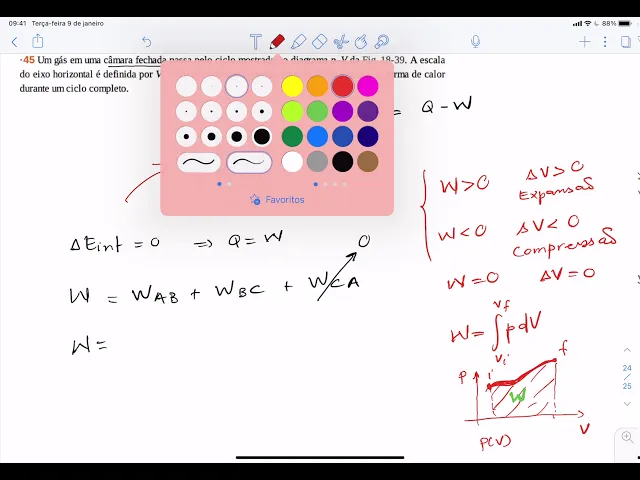 09:41 Terça-feira 9 de janeiro
88%
•45 Um gás em uma câmara fechada passa pelo ciclo mostrado no diagrama p-V da Fig. 18-39. A escala
do eixo horizontal é definida por
rma de calor
durante um ciclo completo.
= Q - W
Favoritos
W > 0 ΔV > 0
Expansão
W < 0 ΔV < 0
Compressão
W = 0 ΔV = 0
ΔEint = 0 ⇒ Q = W 0
W = WAB + WBC + WCA
W =
W = ∫ Vi Vf p dV
P i f
W
V
P(V)
24
25